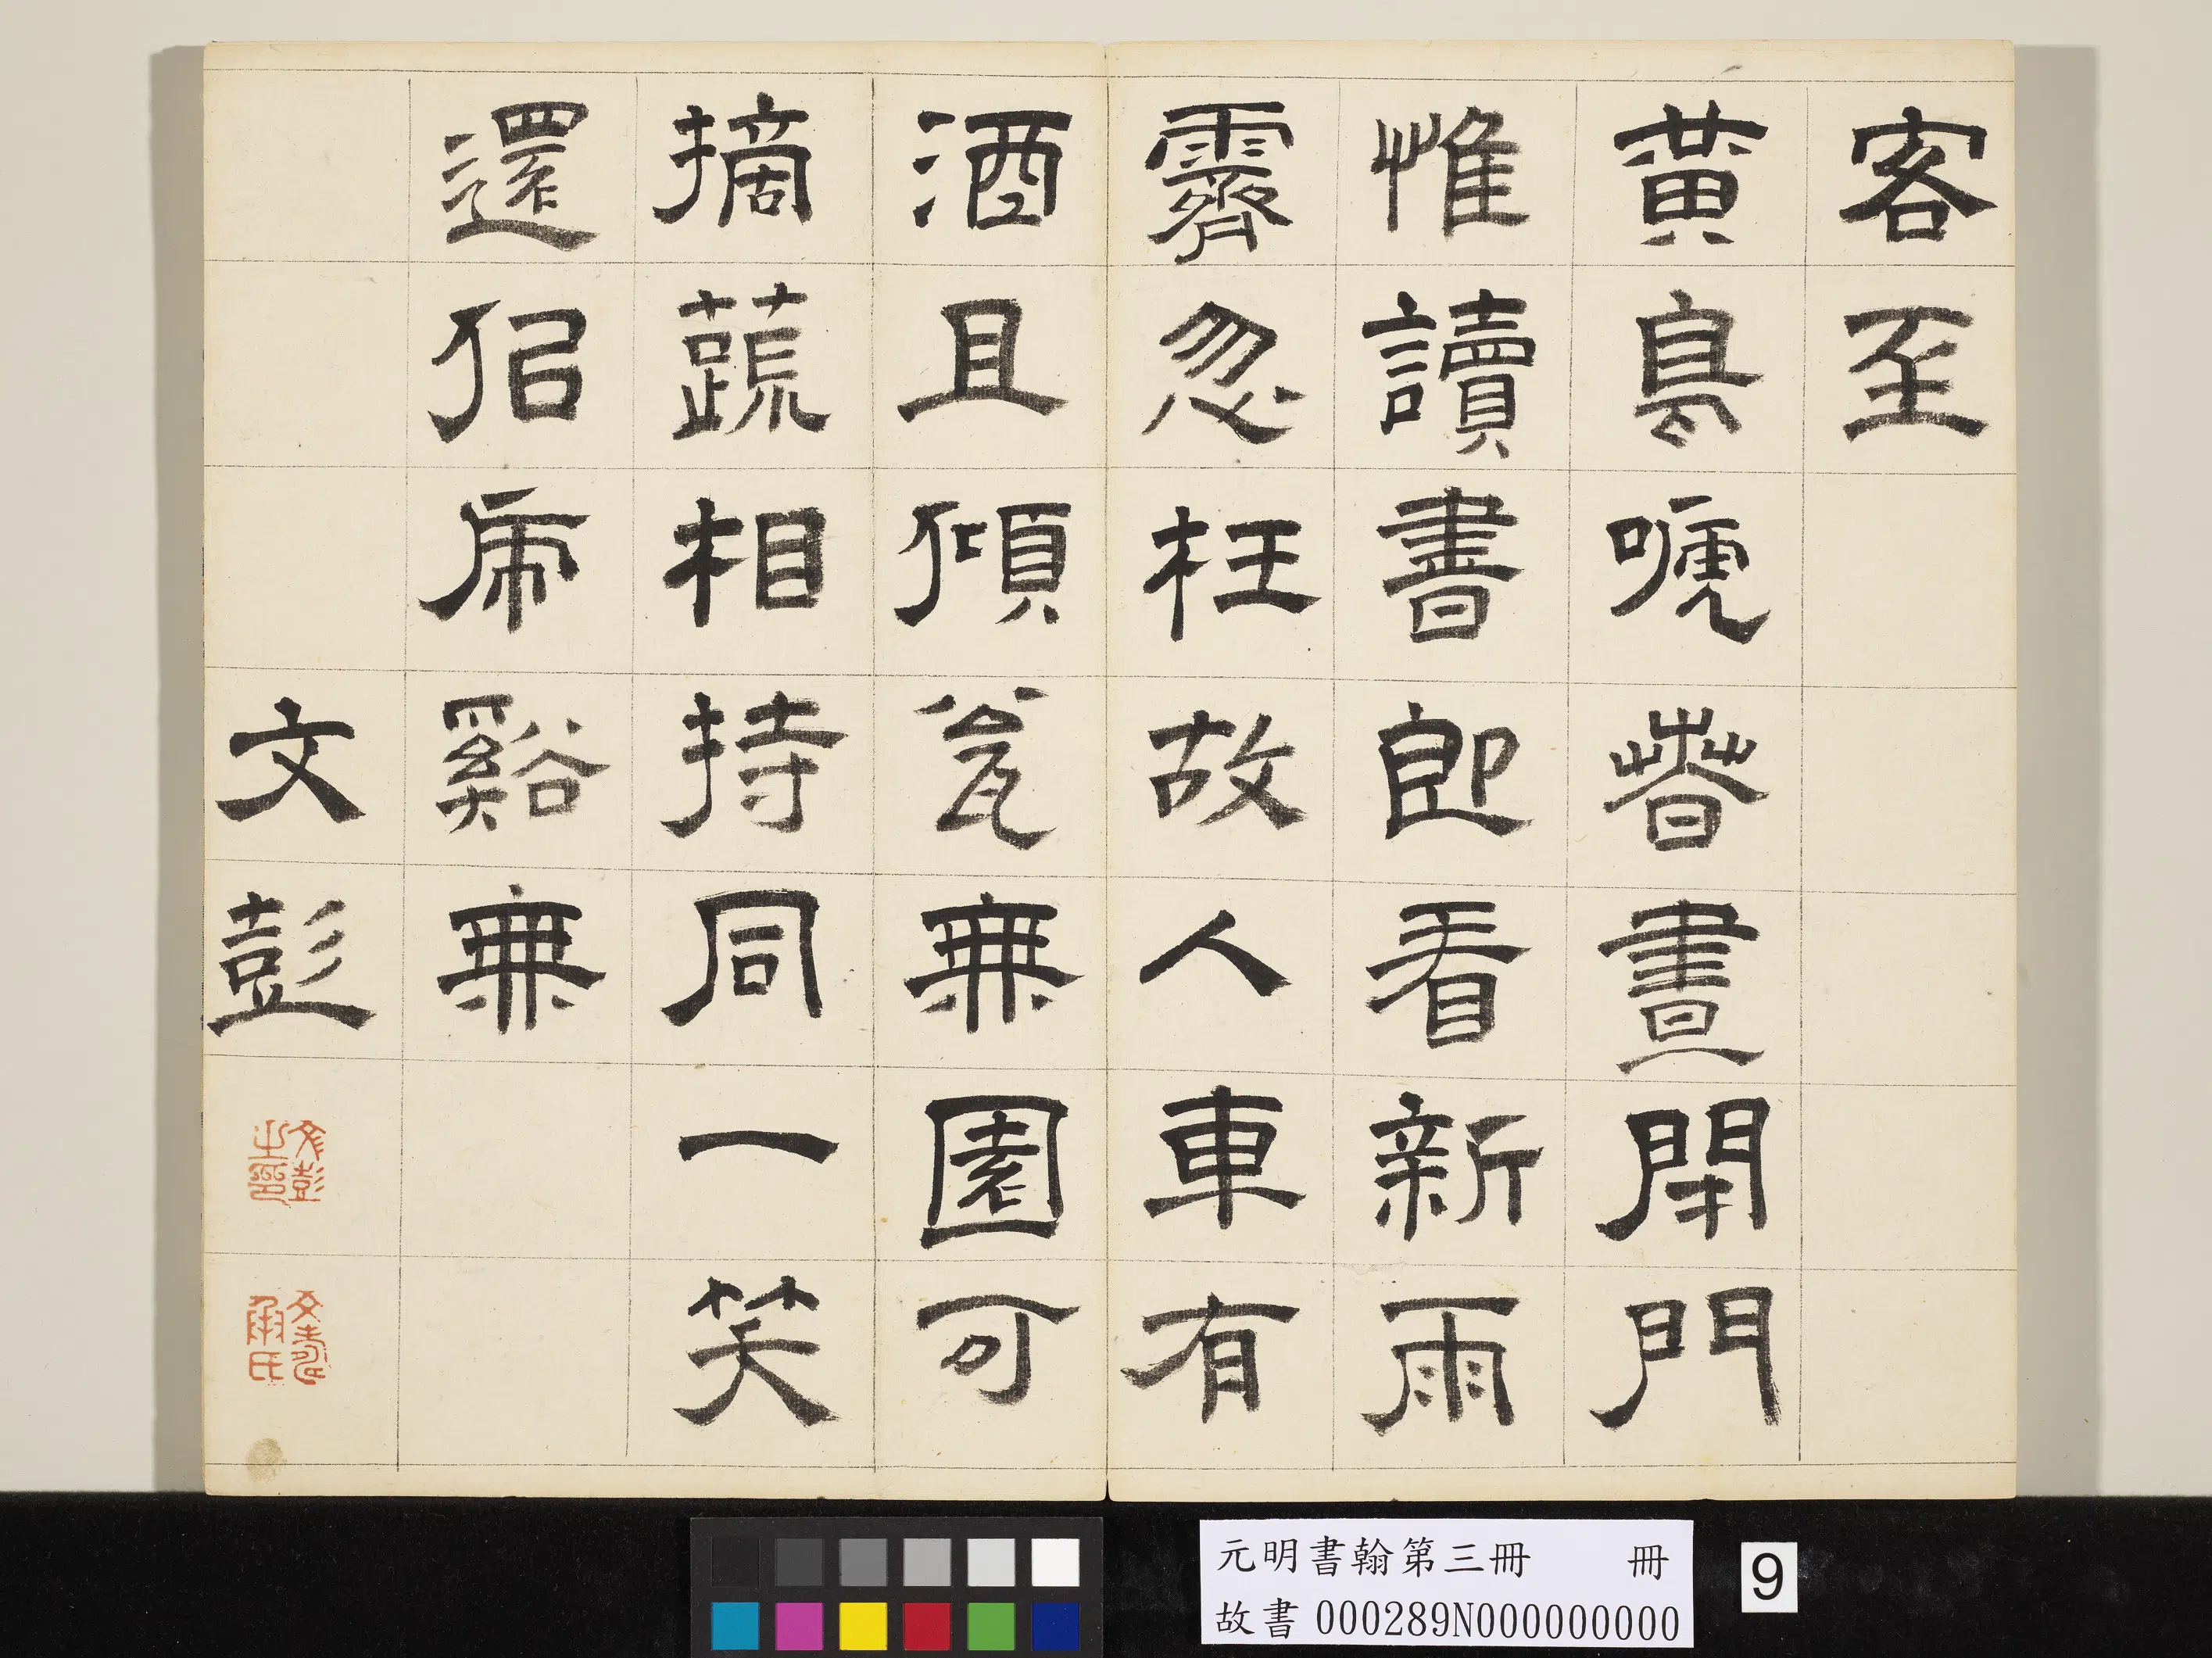 客至
黃鳥嗁萅晝閉門
惟讀書即看新雨
霽忽枉故人車有
酒且傾瓮無園可
摘蔬相持同一笑
還佀虎谿無
文彭
文彭之印
文壽承氏
元明書翰第三冊 冊
故書 000289N000000000
9